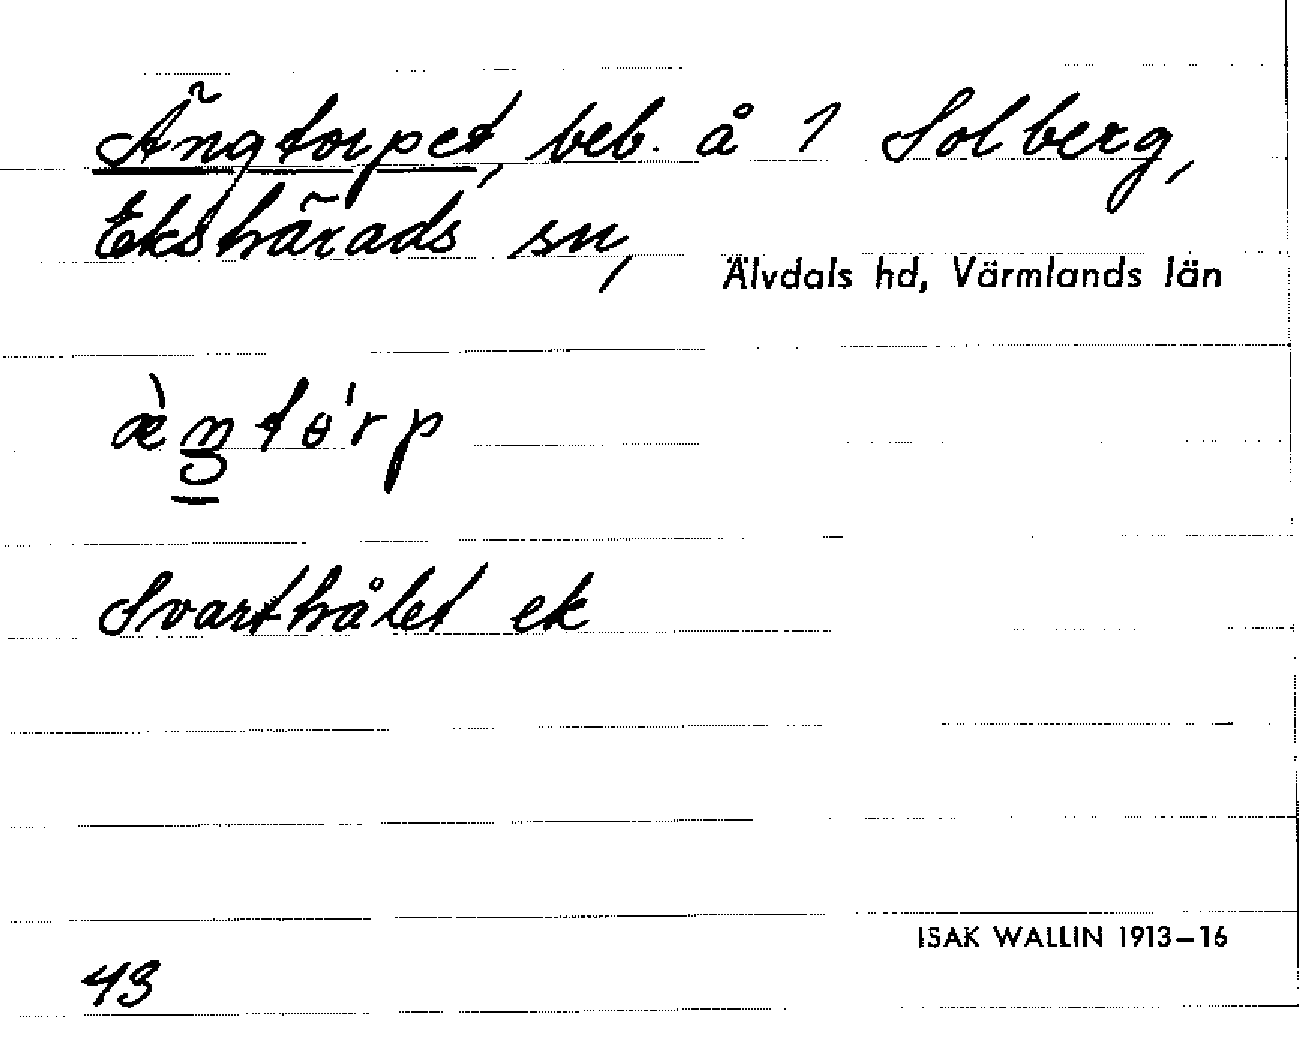 Ängtorpet, beb. å 1 Solberg,
Ekshärads sn, Älvdals hd, Värmlands län
æ̀ŋtɵ'rp
Svarthålet ek
ISAK WALLIN 1913–16
43